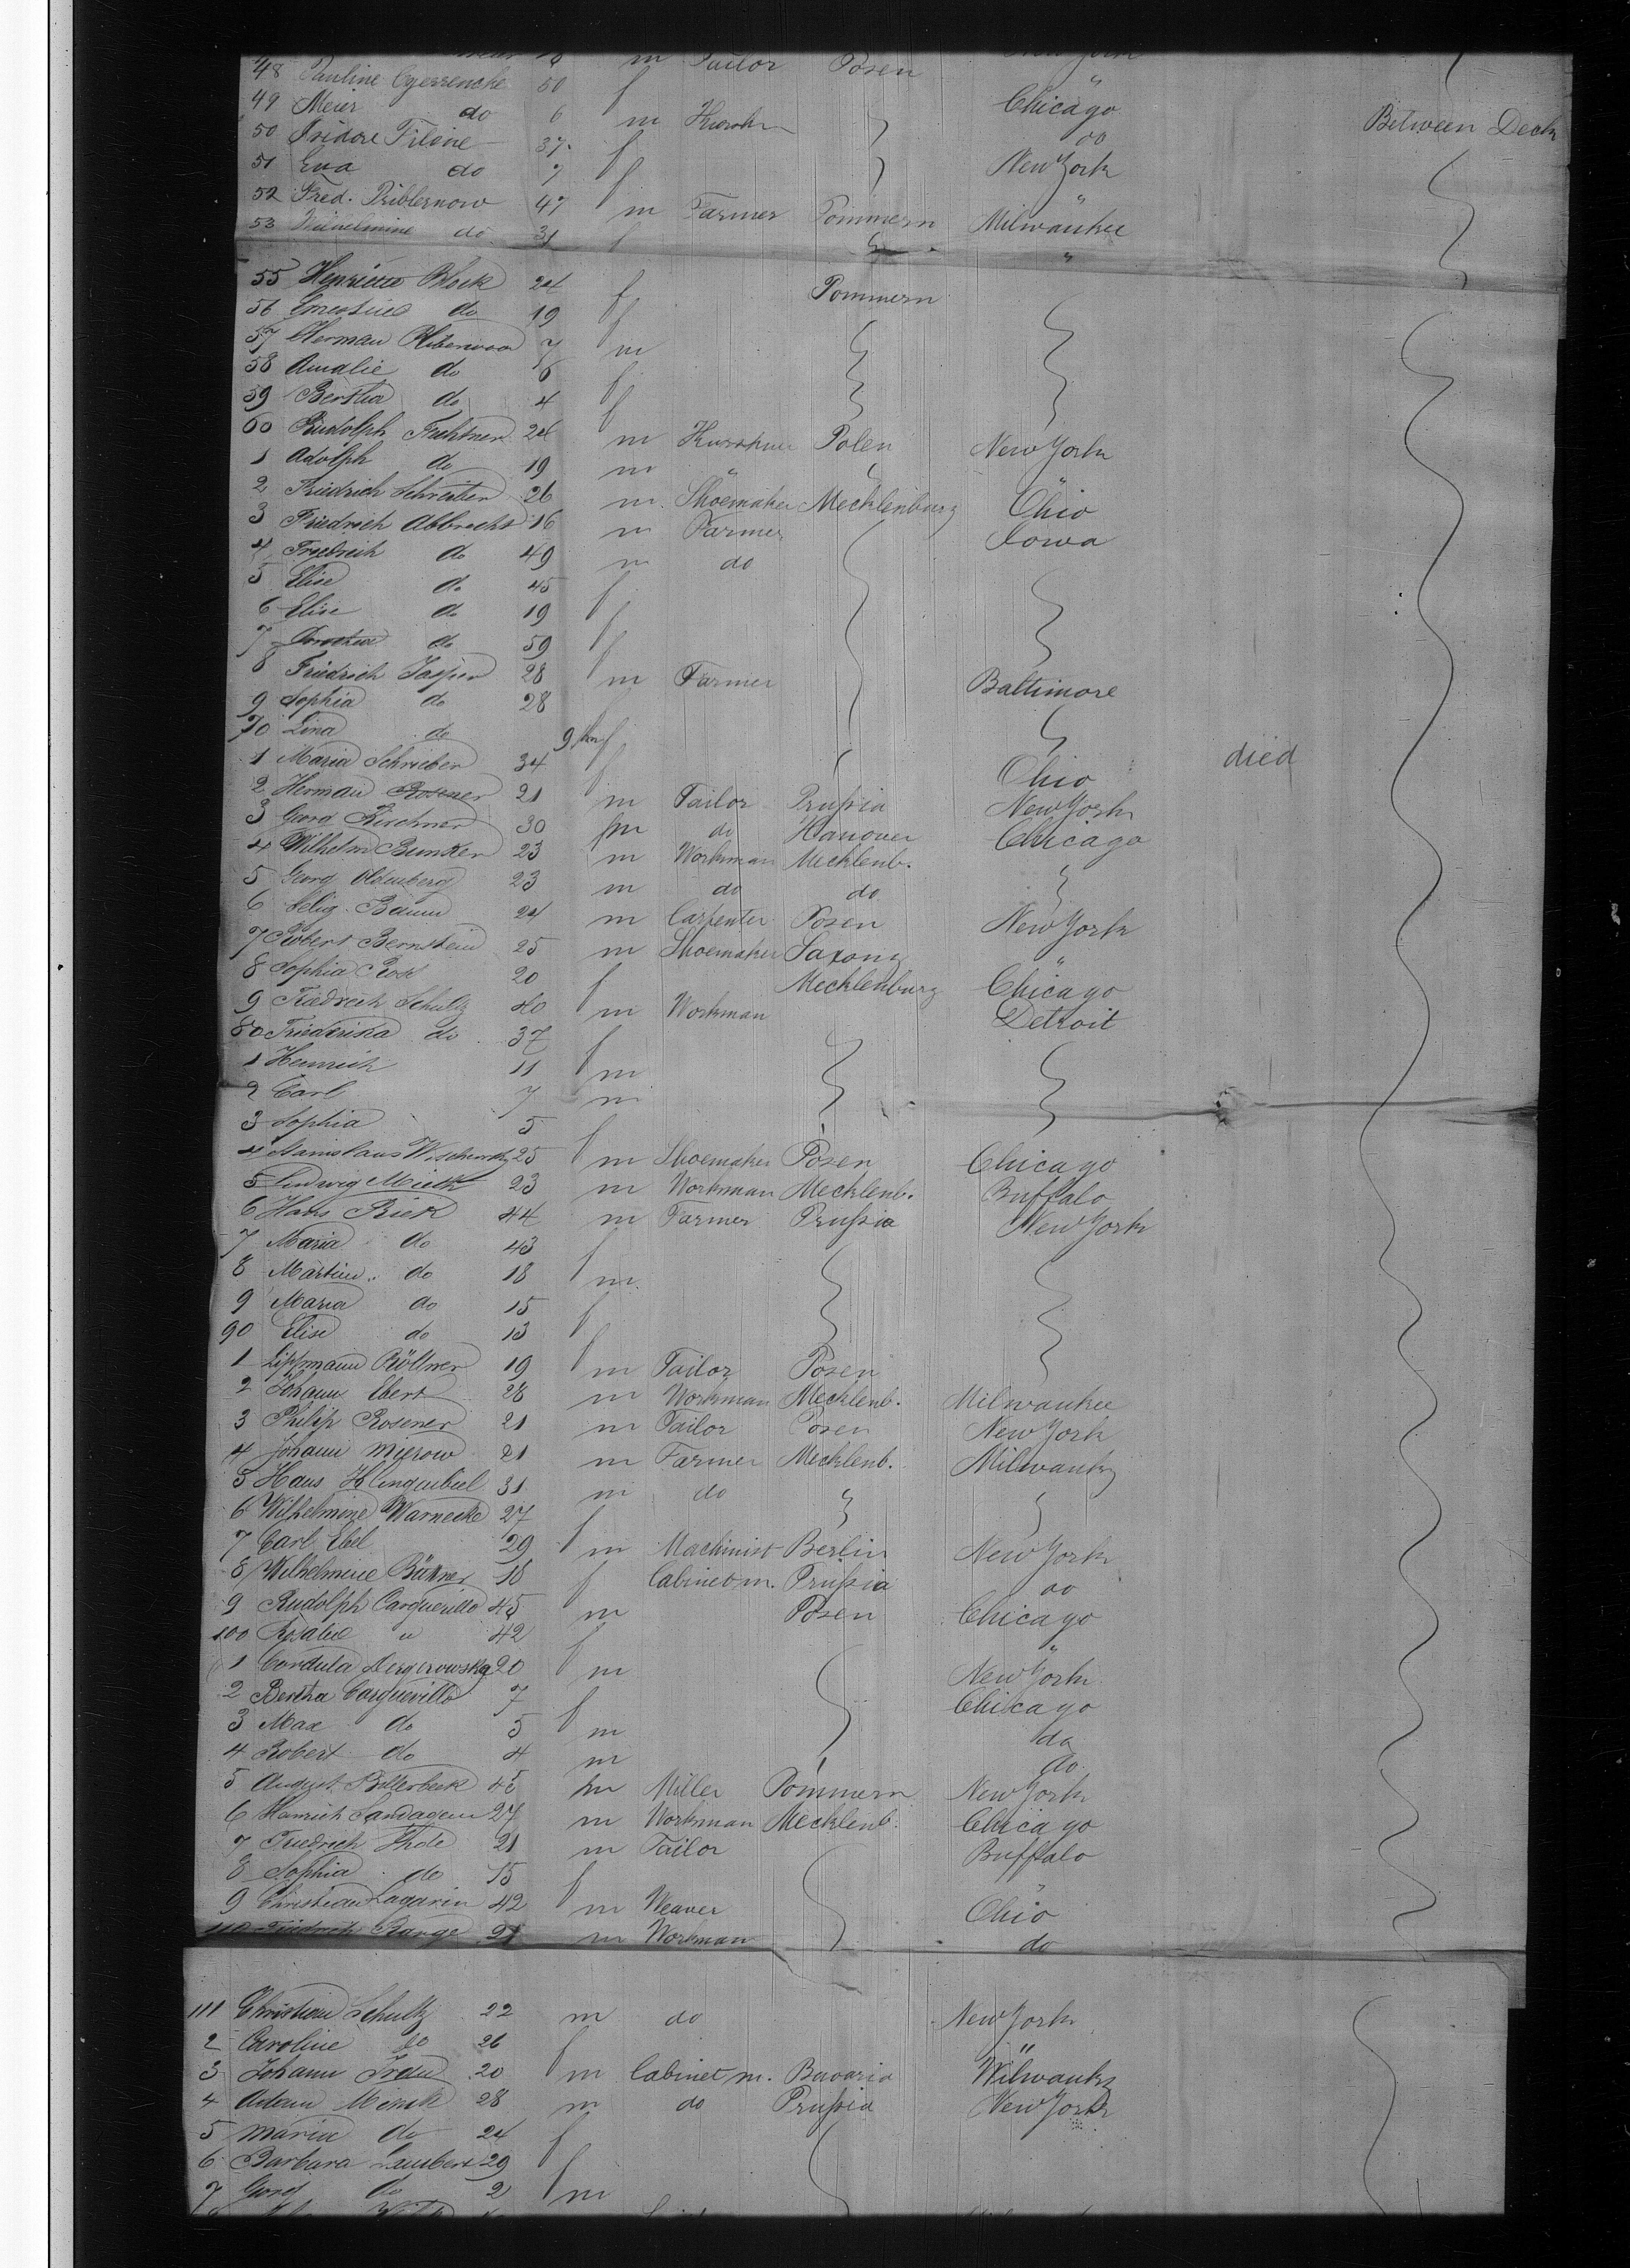 m Tailor Posen New York
48 Pauline 50 f "
49 Meier do 6 m Chicago Between Deck
50 Isidore Filene 37 f do
51 Eva do 7 f New York
52 Fred. Priblernow 47 m Farmer Pommern "
53 Wilhelmine do 31 f Milwaukee
"
55 Henriette Block 24 f Pommern
56 Ernestine do 19 f
57 Herman 7 m
58 Amalie do 6 f
59 Bertha do 4 f
60 Rudolph Fechtner 24 m Kurschner Polen New York
1 Adolph do 19 m " "
2 Friedrich Schreiber 26 m Shoemaker Mecklenburg Ohio
3 Friedrich Abbrecht 16 m Farmer Iowa
4 Friedrich do 49 m do
5 Elise do 45 f
6 Elise do 19 f
7 Dorothea do 59 f
8 Friedrich Jasper 28 m Farmer Baltimore
9 Sophia do 28 f
70 Lina do 9 f
1 Maria Schrieber 34 f Ohio died
2 Herman Rosener 21 m Tailor Prussia New York
3 Georg Kirchner 30 m do Hanover Chicago
4 Wilhelm Bunker 23 m Workman Mecklenb.
5 Georg Oldenberg 23 m do do
6 Selig Baum 24 m Carpenter Posen New York
7 Robert Bernstein 25 m Shoemaker Saxony "
8 Sophia Rose 20 f Mecklenburg Chicago
9 Friedrich Schultz 40 m Workman Detroit
80 Friederika do 37 f
1 Heinrich 11 m
2 Carl 7 m
3 Sophia 5 f
4 Stanislaus 25 m Shoemaker Posen Chicago
5 Ludwig Mieth 23 m Workman Mecklenb. Buffalo
6 Hans Riek 44 m Farmer Prussia New York
7 Maria do 43 f
8 Martin do 18 m
9 Maria do 15 f
90 Elise do 13 f
1 Lippmann Röllner 19 m Tailor Posen
2 Johann Ebert 28 m Workman Mecklenb. Milwaukee
3 Philip Rosener 21 m Tailor Posen New York
4 Johann Mierow 21 m Farmer Mecklenb. Milwauky
5 Hans Klinguebiel 31 m do
6 Wilhelmine Warnecke 27 f
7 Carl Ebel 29 m Machinist Berlin New York
8 Wilhelmine Büttner 18 f Cabinetm. Prussia do
9 Rudolph Carquerille 45 m Posen Chicago
100 Rosalie " 42 f "
1 Cordula 20 m New York
2 Bertha Carqueville 7 f Chicago
3 Max do 5 m do
4 Robert do 4 m do
5 August Billerbeck 45 m Miller Pommern New York
6 Heinrich 27 m Workman Mecklenb. Chicago
7 Friedrich Thde 21 m Tailor Buffalo
8 Sophia do 15 f "
9 Christian Lagarin 42 m Weaver Ohio
110 Friedrich Range 21 m Workman do
111 Christian Schultz 22 m do New York
2 Caroline do 26 f "
3 Johann 20 m Cabinet m. Bavaria Milwauky
4 Adam Minck 28 m do Prussia New York
5 Maria do 24 f
6 Barbara Laubert 29 f
7 Georg do 2 m